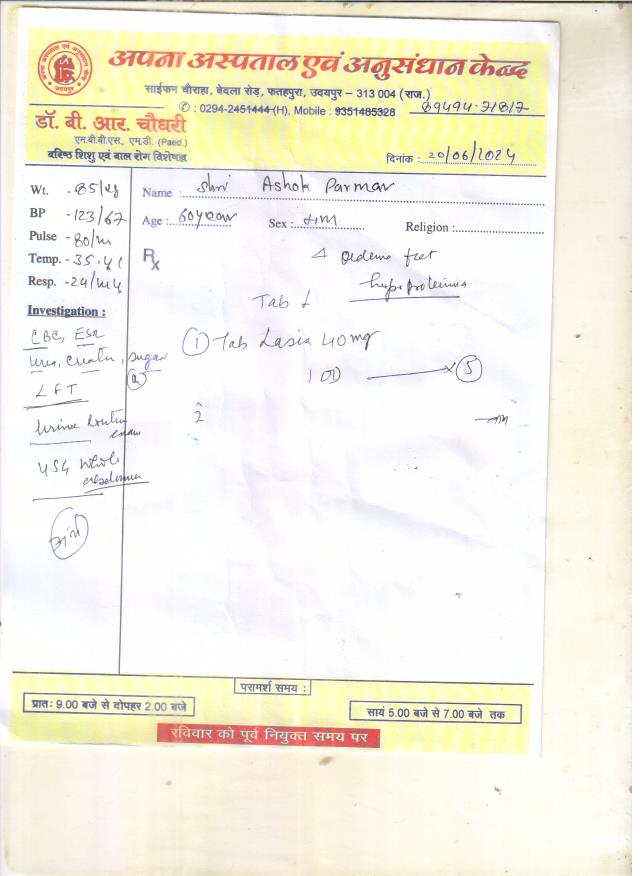 अपना अस्पताल एवं अनुसंधान केन्द्र
साईफन चौराहा, बेदला रोड़, फतहपुरा, उदयपुर – 313 004 (राज.)
✆ : 0294-2451444 (H), Mobile : 9351485328
डॉ. बी. आर. चौधरी
एम.बी.बी.एस., एम.डी. (Paed.)
वरिष्ठ शिशु एवं बाल रोग विशेषज्ञ
दिनांक : 20/06/2024
Wt. - 85/kg
Name : Shri Ashok Parmar
BP - 123/67
Age : 60 year Sex : Religion :
Pulse - 80/m
Temp. - 35.
Resp. - 24/
Rx
Δ Oedema feet
hypoproteinemia
Tab
Investigation :
CBC, ESR
① Tab Lasix 40mg
Urea, Creatin, Sugar
1 OD 5
(R)
LFT
Urine Routine
exam
2
USG Whole
abdomen
परामर्श समय :
प्रातः 9.00 बजे से दोपहर 2.00 बजे
सायं 5.00 बजे से 7.00 बजे तक
रविवार को पूर्व नियुक्त समय पर